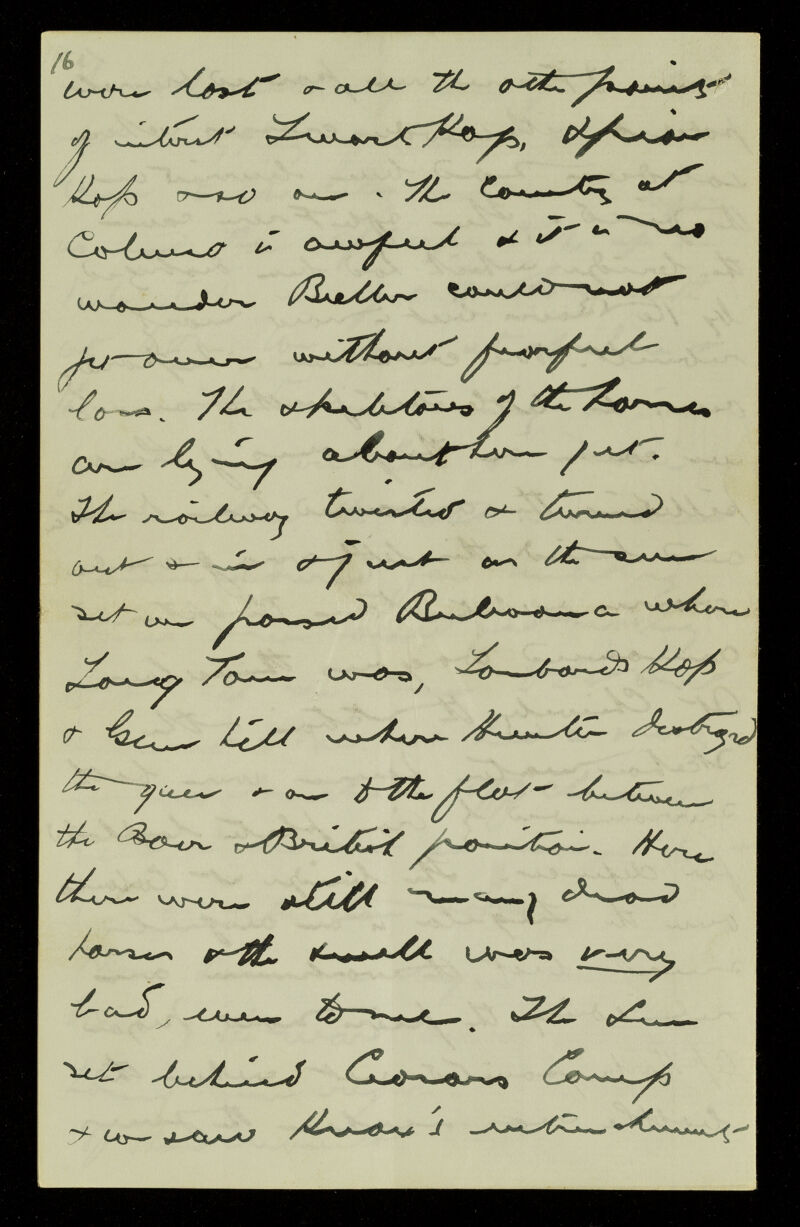 16
were lost & all the other points
of interest Swart Kop, Spion
Kop & so on. The country at
Colenso is awful & it is no
wonder Buller could not
get over without fearful
loss. The skeletons of the horses
are lying about here yet.
The railway twisted & turned
out & in & just as the sun
set we passed Bulwana where
Long Tom was, Lombards Kop
& Gun hill where Hunter destroyed
the guns & on to the flat between
the Boer & British position. Here
there were still many dead
horses & the smell was very
bad, even to me. The Sun
set behind Ceasars Camp
& we saw Knox's entrenchments